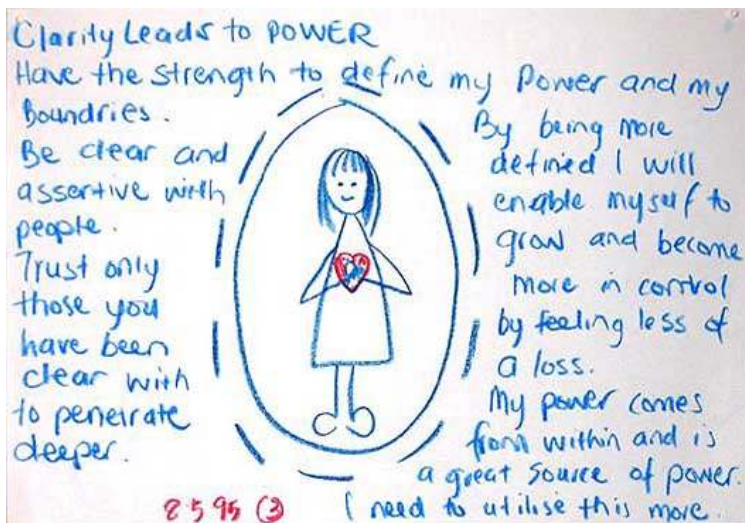 Clarity Leads to POWER
Have the strength to define my Power and my
Boundries.
Be clear and
assertive with
people.
Trust only
those you
have been
clear with
to penetrate
deeper.
By being more
defined I will
enable myself to
grow and become
more in control
by feeling less of
a loss.
My power comes
from within and is
a great source of power.
I need to utilise this more.
8 5 95 (3)